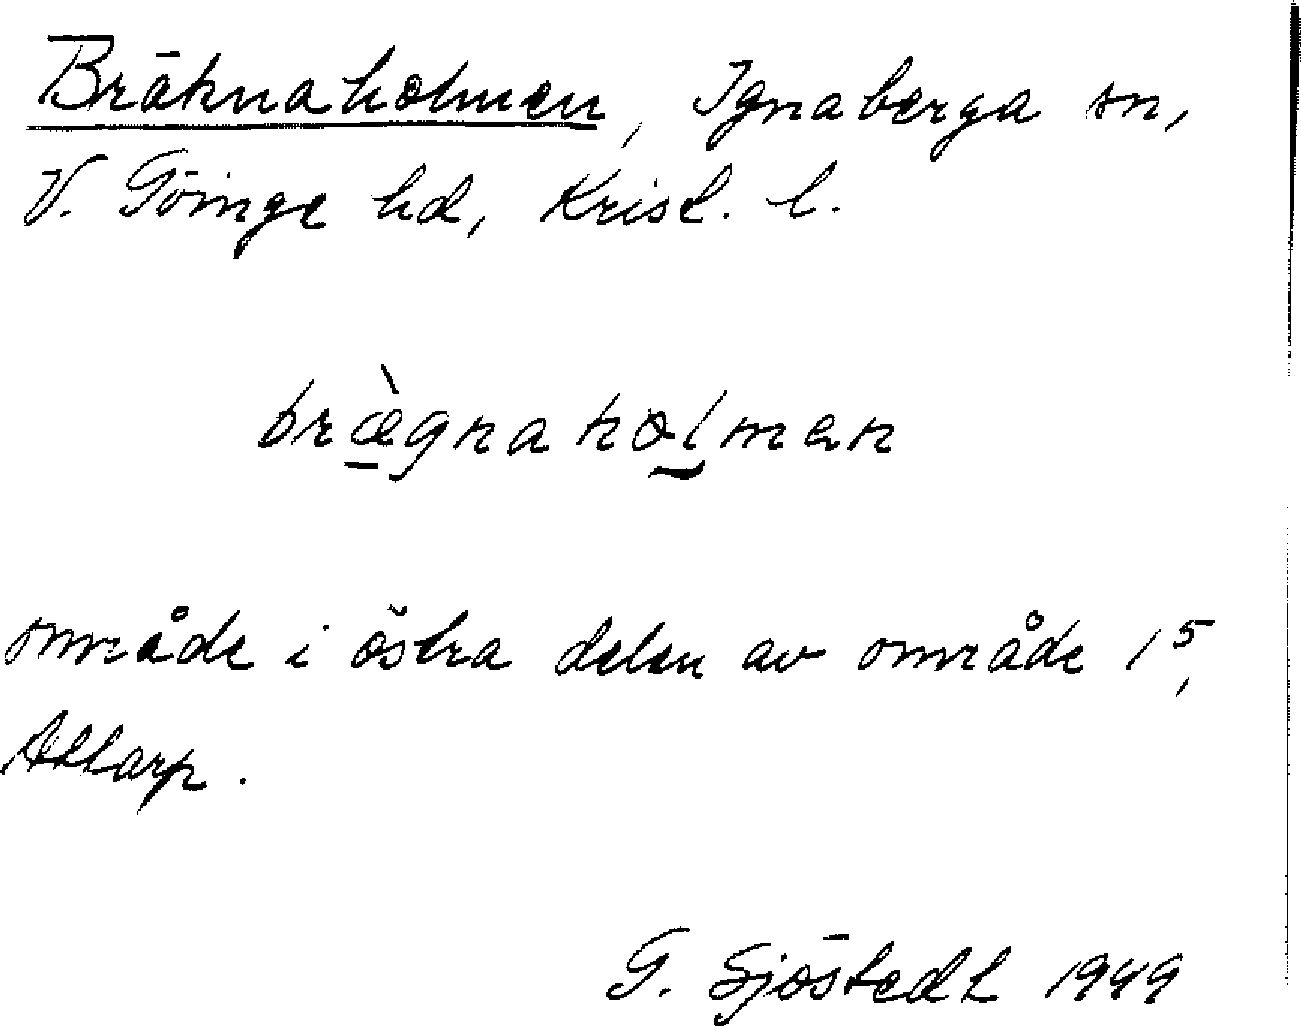 Bräknaholmen, Ignaberga sn,
V. Göinge hd, Krist. l.
bræ̀gnahol̯man
område i östra delen av område 1⁵,
Attarp.
G. Sjöstedt 1949